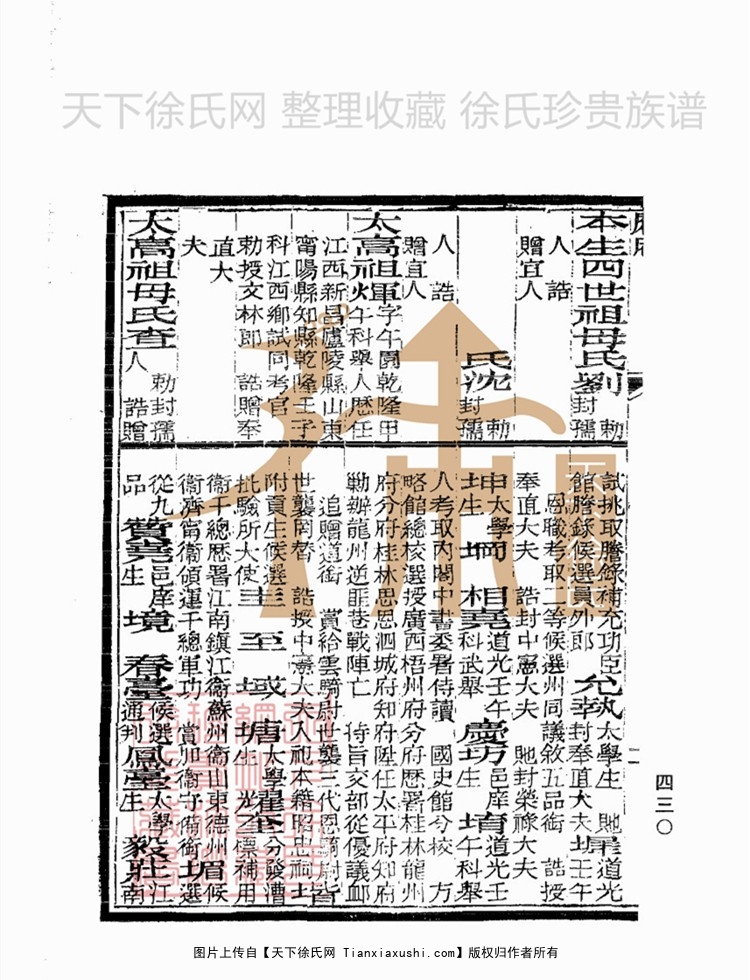 天下徐氏网 整理收藏 徐氏珍贵族谱
本生四世祖母氏劉 勅封孺
人 誥
贈宜人
氏沈 勅封孺
人 誥
贈宜人
太高祖煇 字午園乾隆甲
午科舉人歷任
江西新昌廬陵縣山東
甯陽縣知縣乾隆壬子
科江西鄉試同考官
勅授文林郎 誥贈奉
直大
夫
太高祖母氏查 勅封孺
人 誥贈
試挑取謄錄補充功臣
館謄錄候選員外郎 允執 太學生 貤
封奉直大夫 道光
壬午
恩職考取一等候選州同議敘五品銜 誥授
奉直大夫 誥封中憲大夫 貤封榮祿大夫
坤 太學
生 坰 相堯 道光壬午
科武舉 慶 邑庠
生 堉 道光壬
午科舉
人考取內閣中書委署侍讀 國史館分校 方
略館總校選授廣西梧州府分府歷署桂林龍州
府分府桂林思恩泗城府知府陞任太平府知府
勦辦龍州逆匪巷戰陣亡 特旨交部從優議卹
追贈道銜 賞給雲騎尉世襲三代恩騎尉
世襲罔替 誥授中憲大夫入祀本籍昭忠祠
附貢生候選
批驗所大使 圭 至 域 塘 太學
生 分發漕
標補用
衞千總歷署江南鎮江衞蘇州衞山東德州
衞濟甯衞領運千總軍功 賞加衞守備銜 堳 候
選
從九
品 贊堯 邑庠
生 境 春臺 候選
通判 鳳臺 太學
生 毅壯 江
南
四三〇
图片上传自【天下徐氏网 Tianxiaxushi.com】版权归作者所有